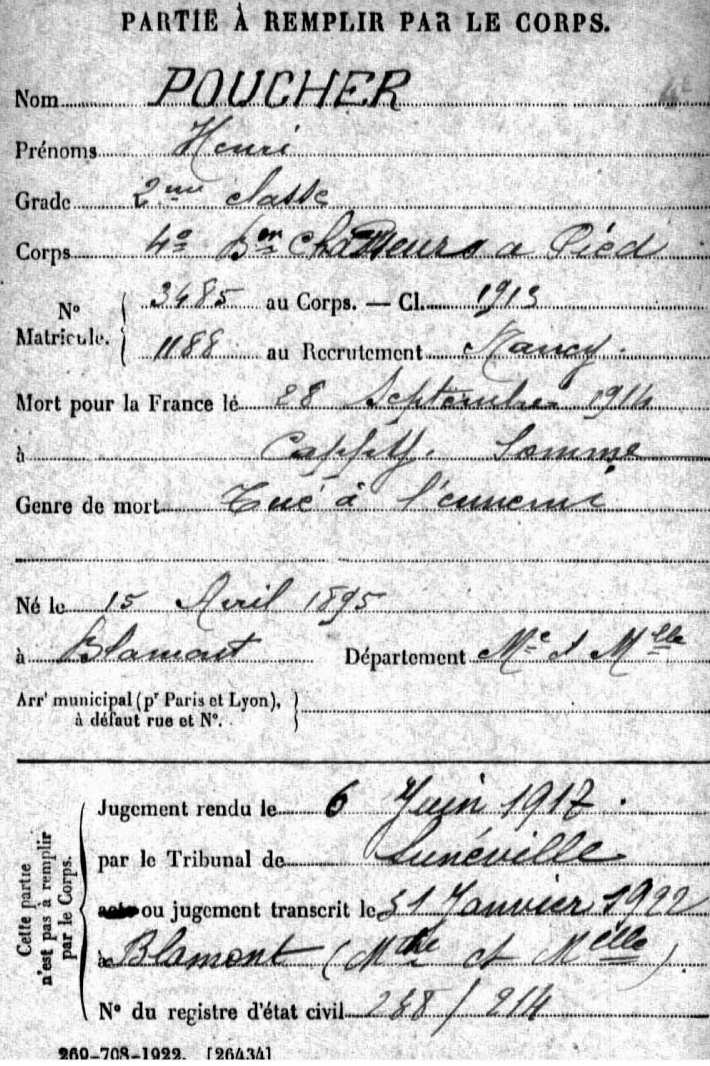 PARTIE À REMPLIR PAR LE CORPS.
Nom POUCHER 4E
Prénoms Henri
Grade 2me classe
Corps 4e Bon Chasseurs a Pied
N° Matricule. { 3485 au Corps. — Cl. 1913
1188 au Recrutement Nancy.
Mort pour la France le 28 Septembre 1914
à Cappy. Somme
Genre de mort Tué à l'ennemi
Né le 15 Avril 1895
à Blamont Département Mthe et Mlle
Arrt municipal (pr Paris et Lyon),
à défaut rue et N°.
Cette partie n'est pas à remplir par le Corps.
Jugement rendu le 6 Juin 1917.
par le Tribunal de Lunéville
acte ou jugement transcrit le 31 Janvier 1922
à Blamont (Mthe et Melle).
N° du registre d'état civil / 214
269-708-1922. [26434]